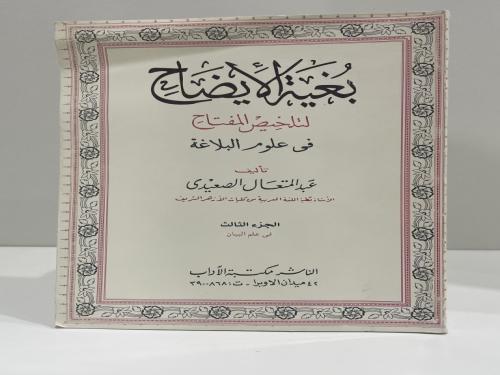 بغية الأيضاح
لتلخيص المفتاح
في علوم البلاغة
تأليف
عبد المتعال الصعيدي
الأستاذ بكلية اللغة العربية من كليات الأزهر الشريف
الجزء الثالث
في علم البيان
الناشر مكتبة الآداب
٤٢ ميدان الأوبرا - ت: ٣٩٠٠٨٦٨